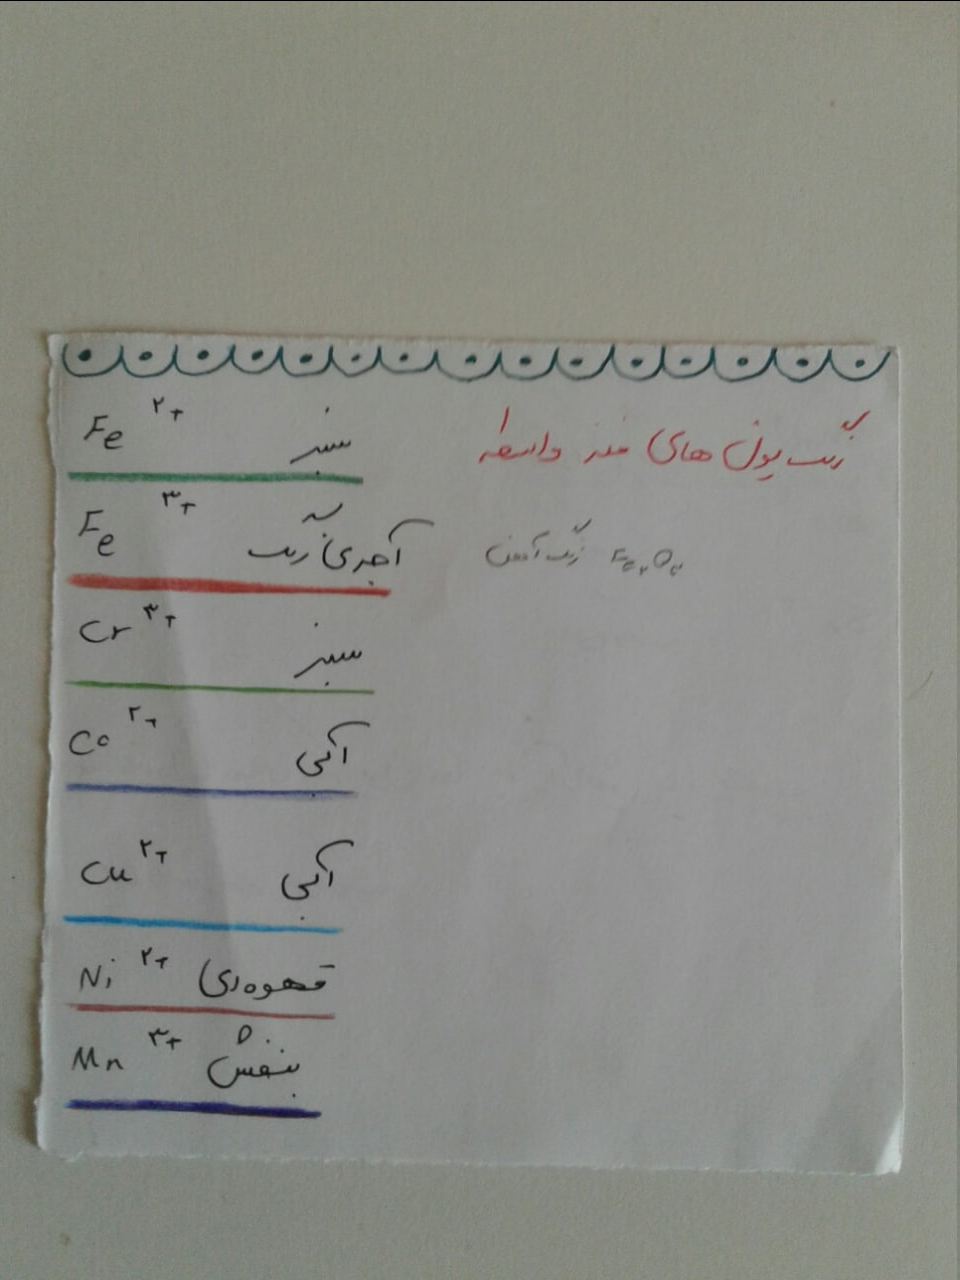 رنگ یون های فلز واسطه
Fe ۲+ سبز
Fe ۳+ آجری رنگ
Fe۲O۳ زنگ آهن
Cr ۳+ سبز
Co ۲+ آبی
Cu ۲+ آبی
Ni ۲+ قهوه‌ای
Mn ۳+ بنفش